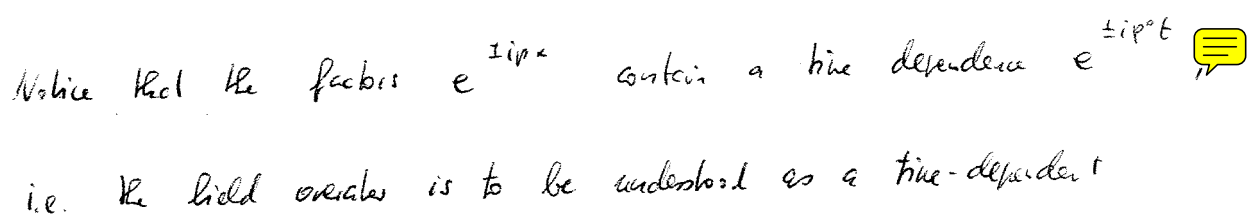 Notice that the factors e^{±ipx} contain a time dependence e^{±ip°t}
i.e. the field operator is to be understood as a time-dependent